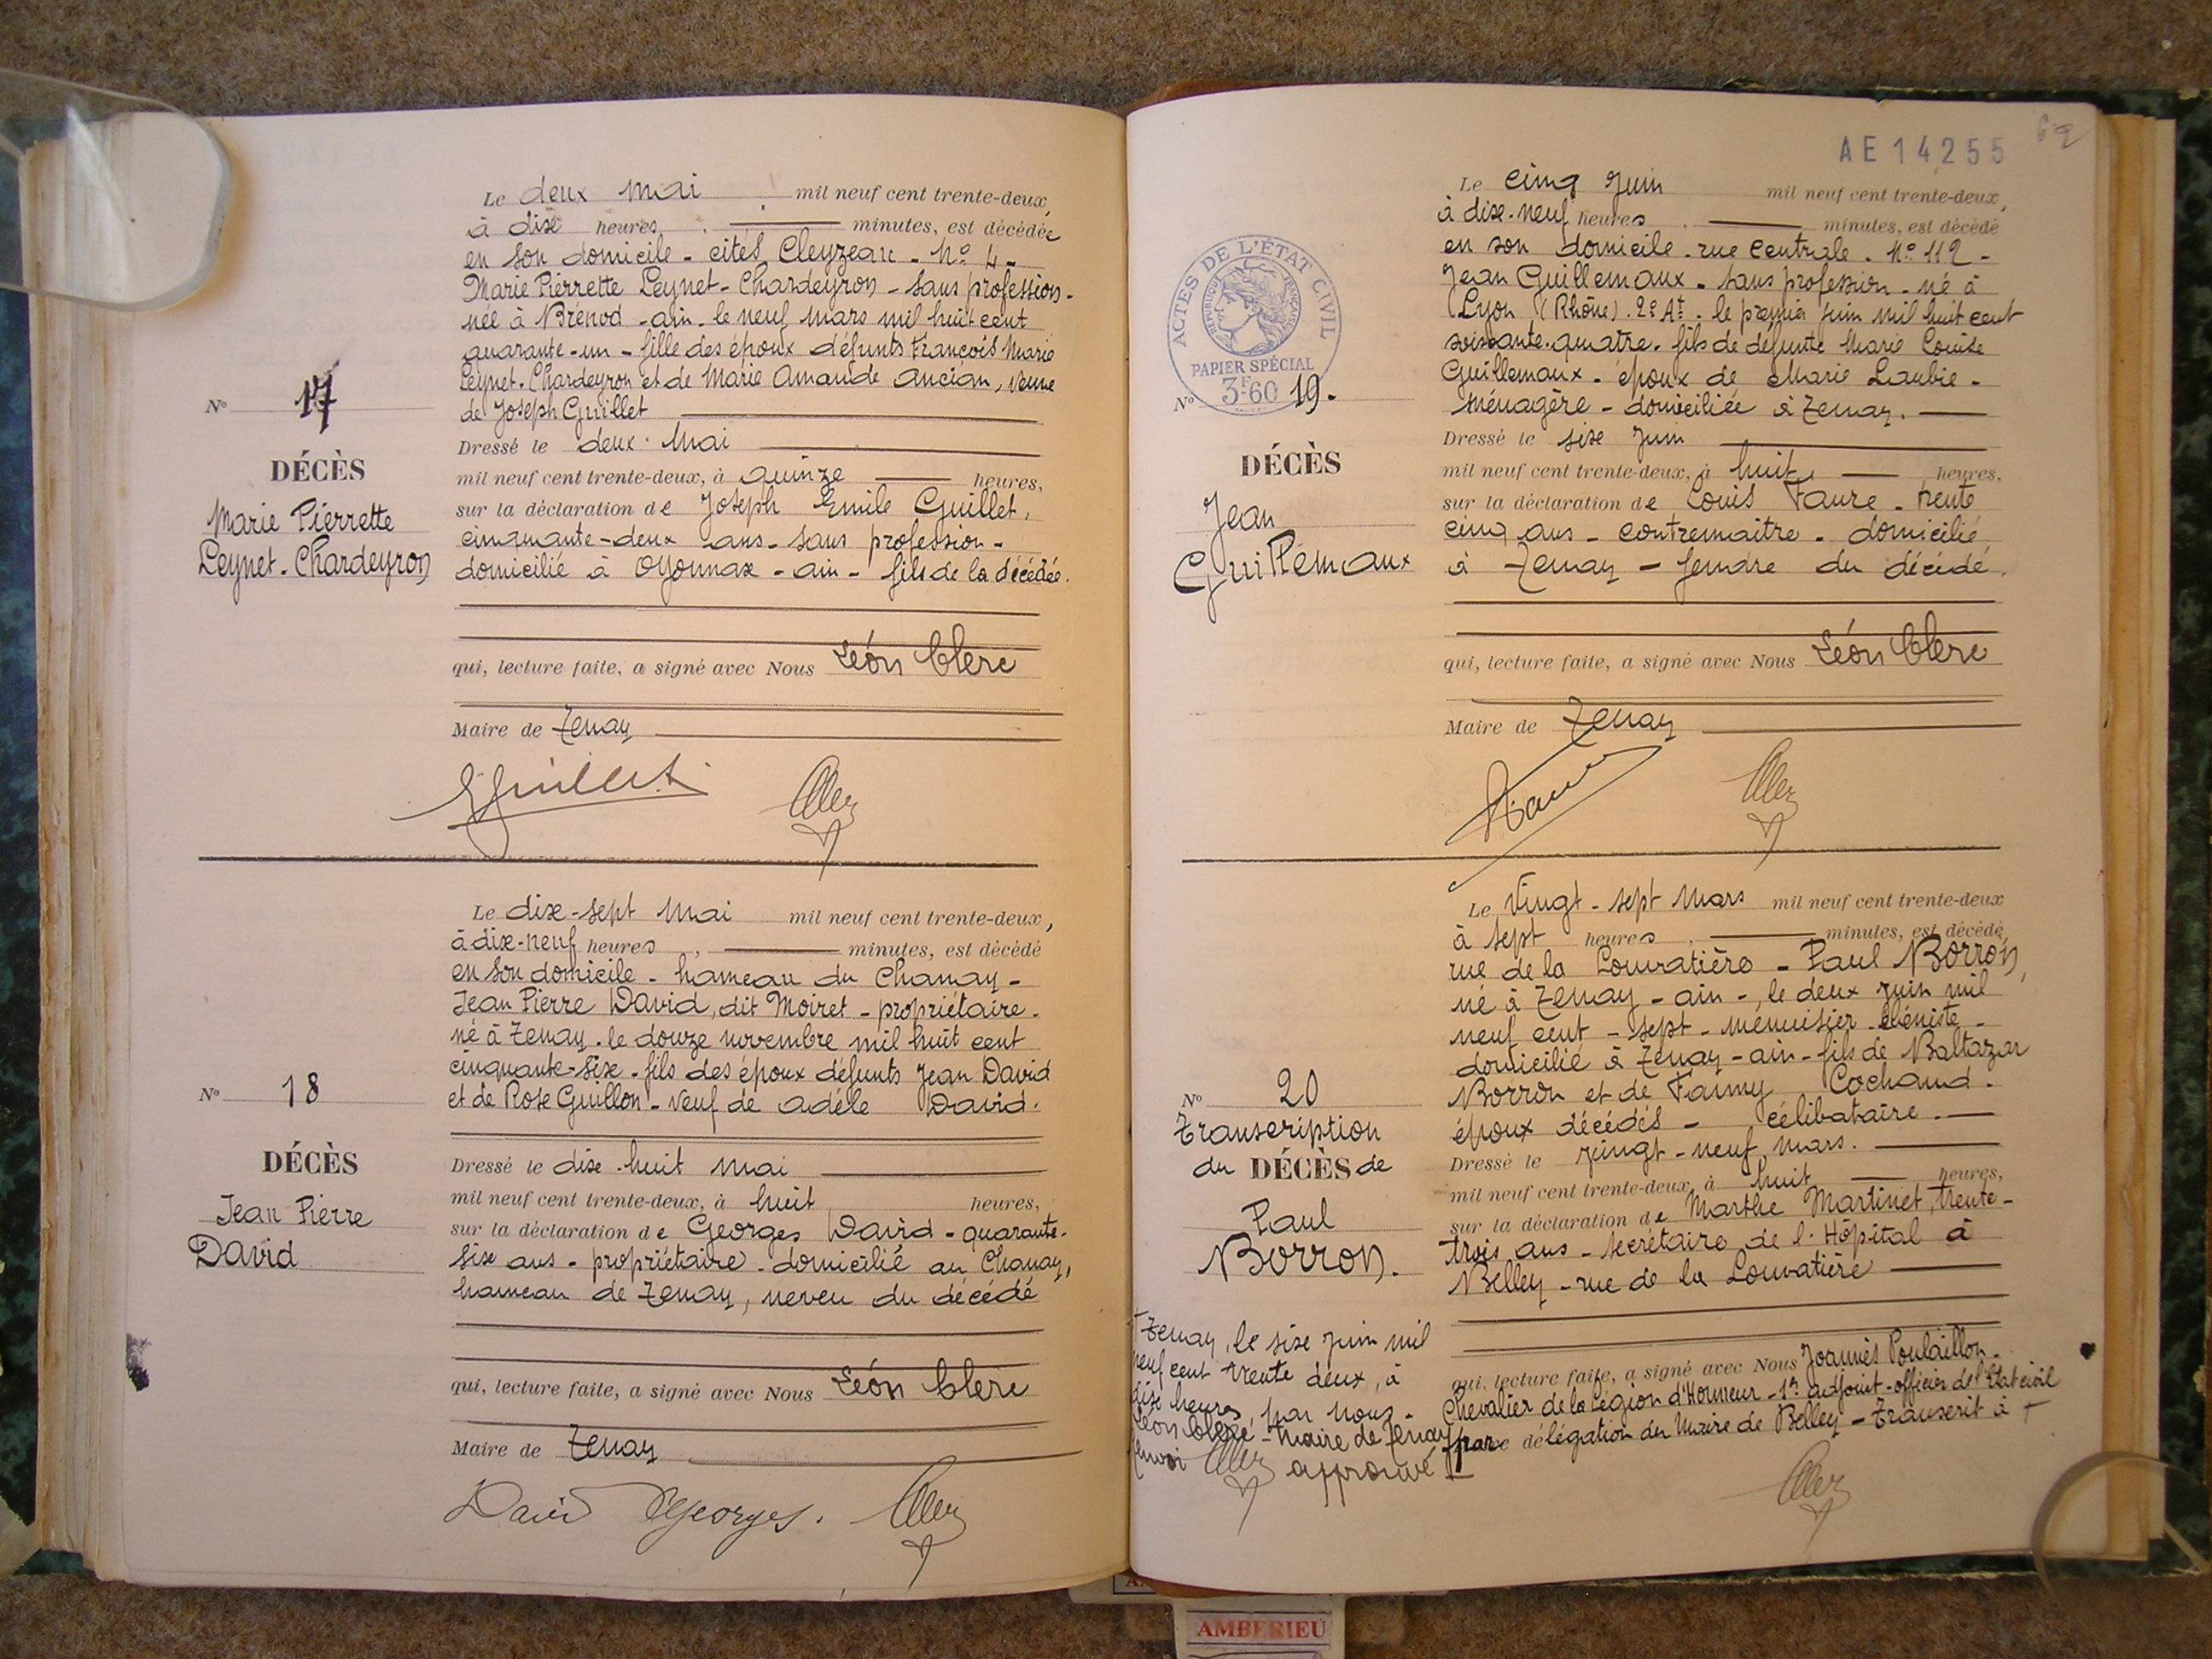 Le deux mai mil neuf cent trente-deux,
à dix heures, minutes, est décédée
en son domicile - cités Cleyzeau - No 4 -
Marie Pierrette Leynet-Chardeyron - sans profession -
née à Brénod - ain - le neuf mars mil huit cent
quarante-un - fille des époux défunts François Marie
Leynet-Chardeyron et de Marie Amande Ancian, veuve
de Joseph Guillet
No 17
DÉCÈS
Marie Pierrette
Leynet-Chardeyron
Dressé le deux mai
mil neuf cent trente-deux, à quinze heures,
sur la déclaration de Joseph Emile Guillet,
cinquante-deux ans - sans profession -
domicilié à Oyonnax - ain - fils de la décédée.
qui, lecture faite, a signé avec Nous Léon Clerc
Maire de Tenay
EGuillet
Clerc
Le dix-sept mai mil neuf cent trente-deux,
à dix-neuf heures, minutes, est décédé
en son domicile - hameau du Chanay -
Jean Pierre David, dit Moiret - propriétaire -
né à Tenay - le douze novembre mil huit cent
cinquante-six - fils des époux défunts Jean David
et de Rose Guillon - veuf de Adèle David.
No 18
DÉCÈS
Jean Pierre
David
Dressé le dix-huit mai
mil neuf cent trente-deux, à huit heures,
sur la déclaration de Georges David - quarante-
six ans - propriétaire - domicilié au Chanay,
hameau de Tenay, neveu du décédé
qui, lecture faite, a signé avec Nous Léon Clerc
Maire de Tenay
David Georges. Clerc
AE 14255
ACTES DE L'ÉTAT CIVIL
RÉPUBLIQUE FRANÇAISE
PAPIER SPÉCIAL
3F60
Le cinq Juin mil neuf cent trente-deux,
à dix-neuf heures, minutes, est décédé
en son domicile - rue Centrale - No 112 -
Jean Guillemaux - sans profession - né à
Lyon (Rhône) - 2e At - le premier juin mil huit cent
soixante-quatre - fils de défunte Marie Louise
Guillemaux - époux de Marie Laubie -
ménagère - domiciliée à Tenay.
No 19.
DÉCÈS
Jean
Guillemaux
Dressé le six Juin
mil neuf cent trente-deux, à huit heures,
sur la déclaration de Louis Faure - trente
cinq ans - contremaître - domicilié
à Tenay - gendre du décédé.
qui, lecture faite, a signé avec Nous Léon Clerc
Maire de Tenay
Clerc
Le Vingt-sept Mars mil neuf cent trente-deux
à sept heures, minutes, est décédé,
rue de la Louvatière - Paul Borron,
né à Tenay - ain -, le deux juin mil
neuf cent - sept - menuisier-ébéniste -
domicilié à Tenay - ain - fils de Baltazar
Borron et de Fanny Cochand -
époux décédés - célibataire.
No 20
Transcription
du DÉCÈS de
Paul
Borron.
Dressé le vingt-neuf mars.
mil neuf cent trente-deux, à huit heures,
sur la déclaration de Marthe Martinet, trente-
trois ans - secrétaire de l'Hôpital à
Belley - rue de la Louvatière
qui, lecture faite, a signé avec Nous Joannès Poulaillon -
Chevalier de la Légion d'Honneur - 1er adjoint - officier de l'Etat civil
par délégation du Maire de Belley - Transcrit à +
+ Tenay, le six juin mil
neuf cent trente deux, à
dix heures, par nous -
Léon Clerc - Maire de Tenay
renvoi Clerc approuvé
Clerc
AMBERIEU